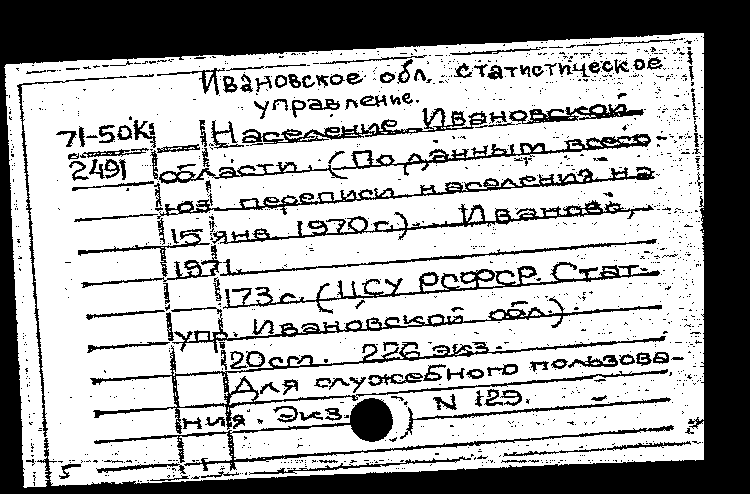 Ивановское обл. статистическое
управление.
71-50К Население Ивановской
2491 области. (По данным всесо-
юз. переписи населения на
15 янв. 1970 г.). Иваново,
1971.
173 с. (ЦСУ РСФСР. Стат.
упр. Ивановской обл.).
20 см. 226 экз.
Для служебного пользова-
ния. Экз. N 129.
5 1